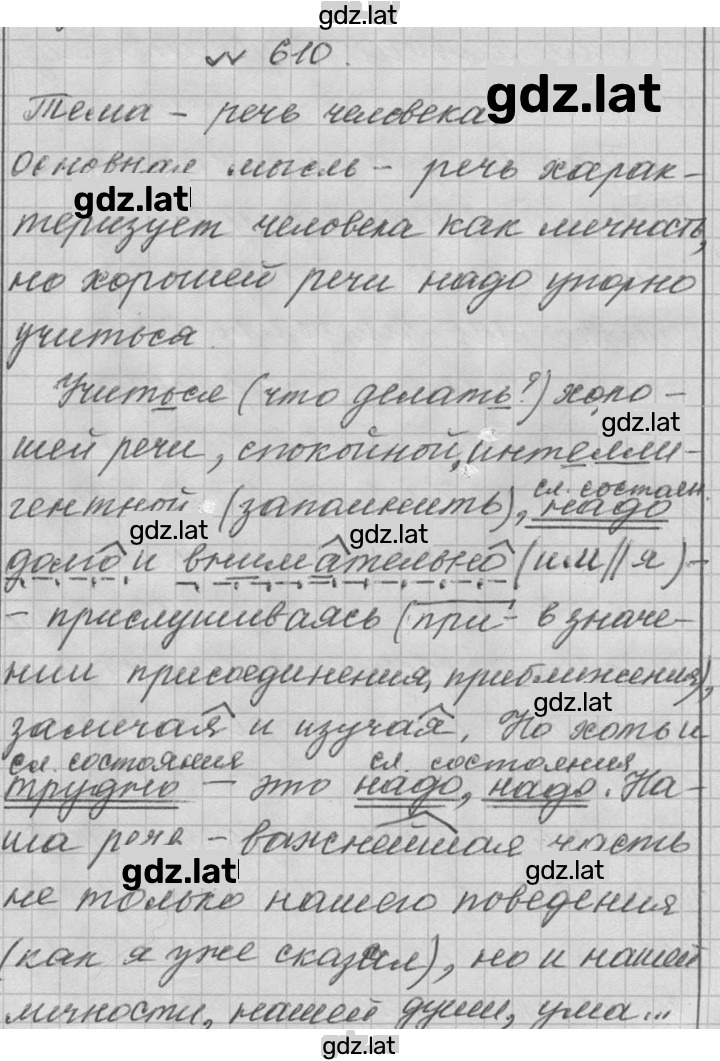 gdz.lat
№ 610.
gdz.lat
Тема – речь человека
Основная мысль – речь харак-
gdz.lat
теризует человека как личность,
но хорошей речи надо упорно
учиться.
Учиться (что делать?) хоро-
gdz.lat
шей речи, спокойной, интелли-
сл. состоян.
гентной (запомнить), надо
gdz.lat gdz.lat
долго и внимательно (им//я) –
– прислушиваясь (при- в значе-
нии присоединения, приближения),
gdz.lat
замечая и изучая. Но хоть и
сл. состояния сл. состояния
трудно – это надо, надо. На-
ша речь – важнейшая часть
gdz.lat gdz.lat
не только нашего поведения
(как я уже сказал), но и нашей
личности, нашей души, ума...
gdz.lat